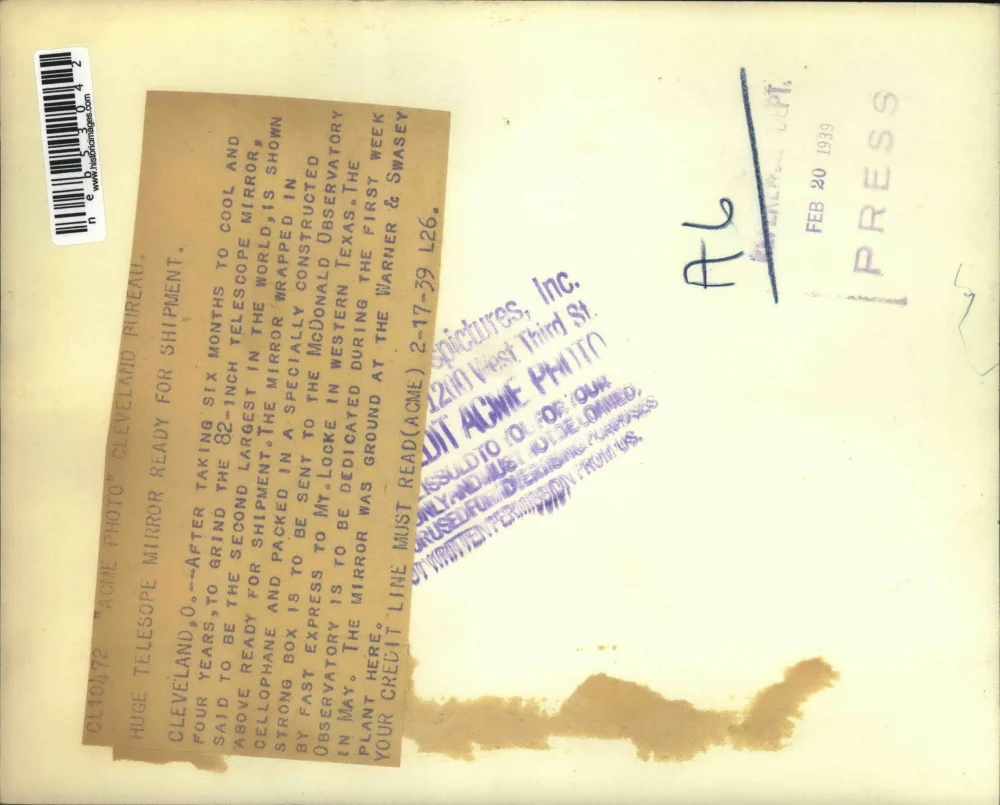 CL10472 "ACME PHOTO" CLEVELAND BUREAU.
HUGE TELESOPE MIRROR READY FOR SHIPMENT.
CLEVELAND,O.--AFTER TAKING SIX MONTHS TO COOL AND
FOUR YEARS,TO GRIND THE 82-INCH TELESCOPE MIRROR,
SAID TO BE THE SECOND LARGEST IN THE WORLD,IS SHOWN
ABOVE READY FOR SHIPMENT.THE MIRROR WRAPPED IN
CELLOPHANE AND PACKED IN A SPECIALLY CONSTRUCTED
STRONG BOX IS TO BE SENT TO THE MCDONALD OBSERVATORY
BY FAST EXPRESS TO MT.LOCKE IN WESTERN TEXAS.THE
OBSERVATORY IS TO BE DEDICATED DURING THE FIRST WEEK
IN MAY. THE MIRROR WAS GROUND AT THE WARNER & SWASEY
PLANT HERE.
YOUR CREDIT LINE MUST READ(ACME) 2-17-39 L26.
pictures, Inc.
1200 West Third St.
ACME PHOTO
TO YOU FOR YOUR
ONLY AND MUST NOT BE LOANED,
OR USED FOR ADVERTISING PURPOSES
WRITTEN PERMISSION FROM US.
A6
DEPT.
FEB 20 1939
PRESS
neb53042
www.historicimages.com